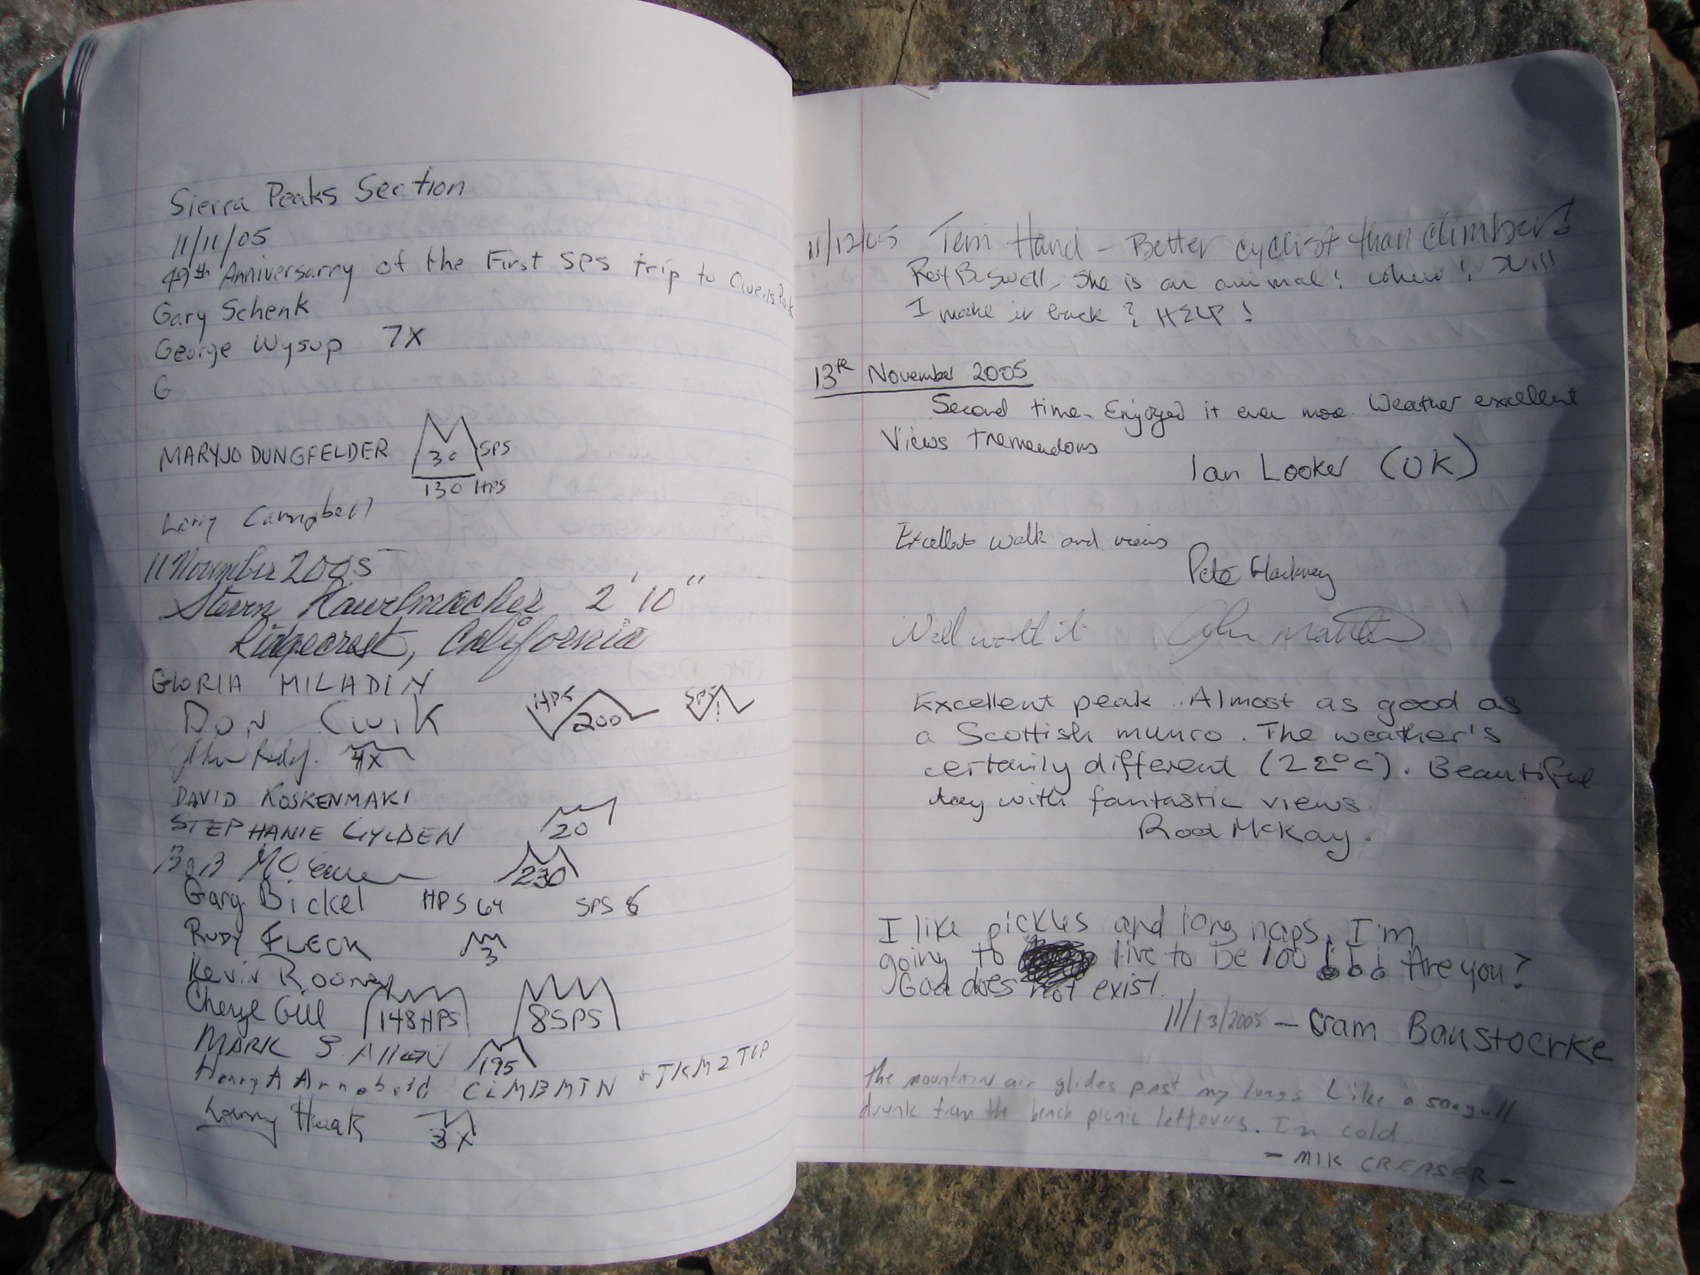 Sierra Peaks Section
11/11/05
49th Anniversarry of the First SPS trip to Owens Peak
Gary Schenk
George Wysup 7X
G
MARYJO DUNGFELDER 30 SPS
130 HPS
Larry Campbell
11 November 2005
2' 10"
Ridgecrest, California
GLORIA MILADIN
DON CWIK HPS 200 SPS 1
4X
DAVID KOSKENMAKI
STEPHANIE GYLDEN 20
BOB 230
Gary Bickel HPS 64 SPS 6
RUDY FLECK 3
Kevin Rooney
Cheryl Gill 148 HPS 8 SPS
MARK S. Allen 195
Henry A CLMBMTN + JKM2TCP
Larry 3X
11/12/05 Terri Hand - Better cyclist than climber!
Roy Buswell, She is an animal! whew! Will
I make it back? HELP!
13th November 2005
Second time. Enjoyed it even more. Weather excellent
Views tremendous
Ian Looker (UK)
Excellent walk and views
Pete Hackney
Well worth it John
Excellent peak. Almost as good as
a Scottish munro. The weather's
certainly different (22°C). Beautiful
day with fantastic views
Rod McKay.
I like pickles and long naps. I'm
going to live to be 100!!! Are you?
God does not exist.
11/13/2005 - Cram Baustoerke
The mountain air glides past my lungs Like a seagull
drunk from the beach picnic leftovers. I'm cold
- MIK CREASER -